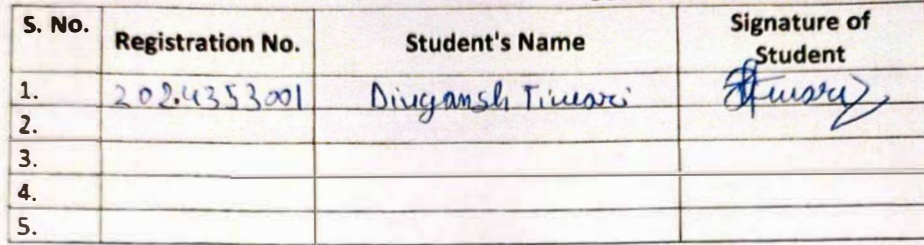 S. No. Registration No. Student's Name Signature of Student
1. 2024353001 Divyansh Tiwari Tiwari
2.
3.
4.
5.